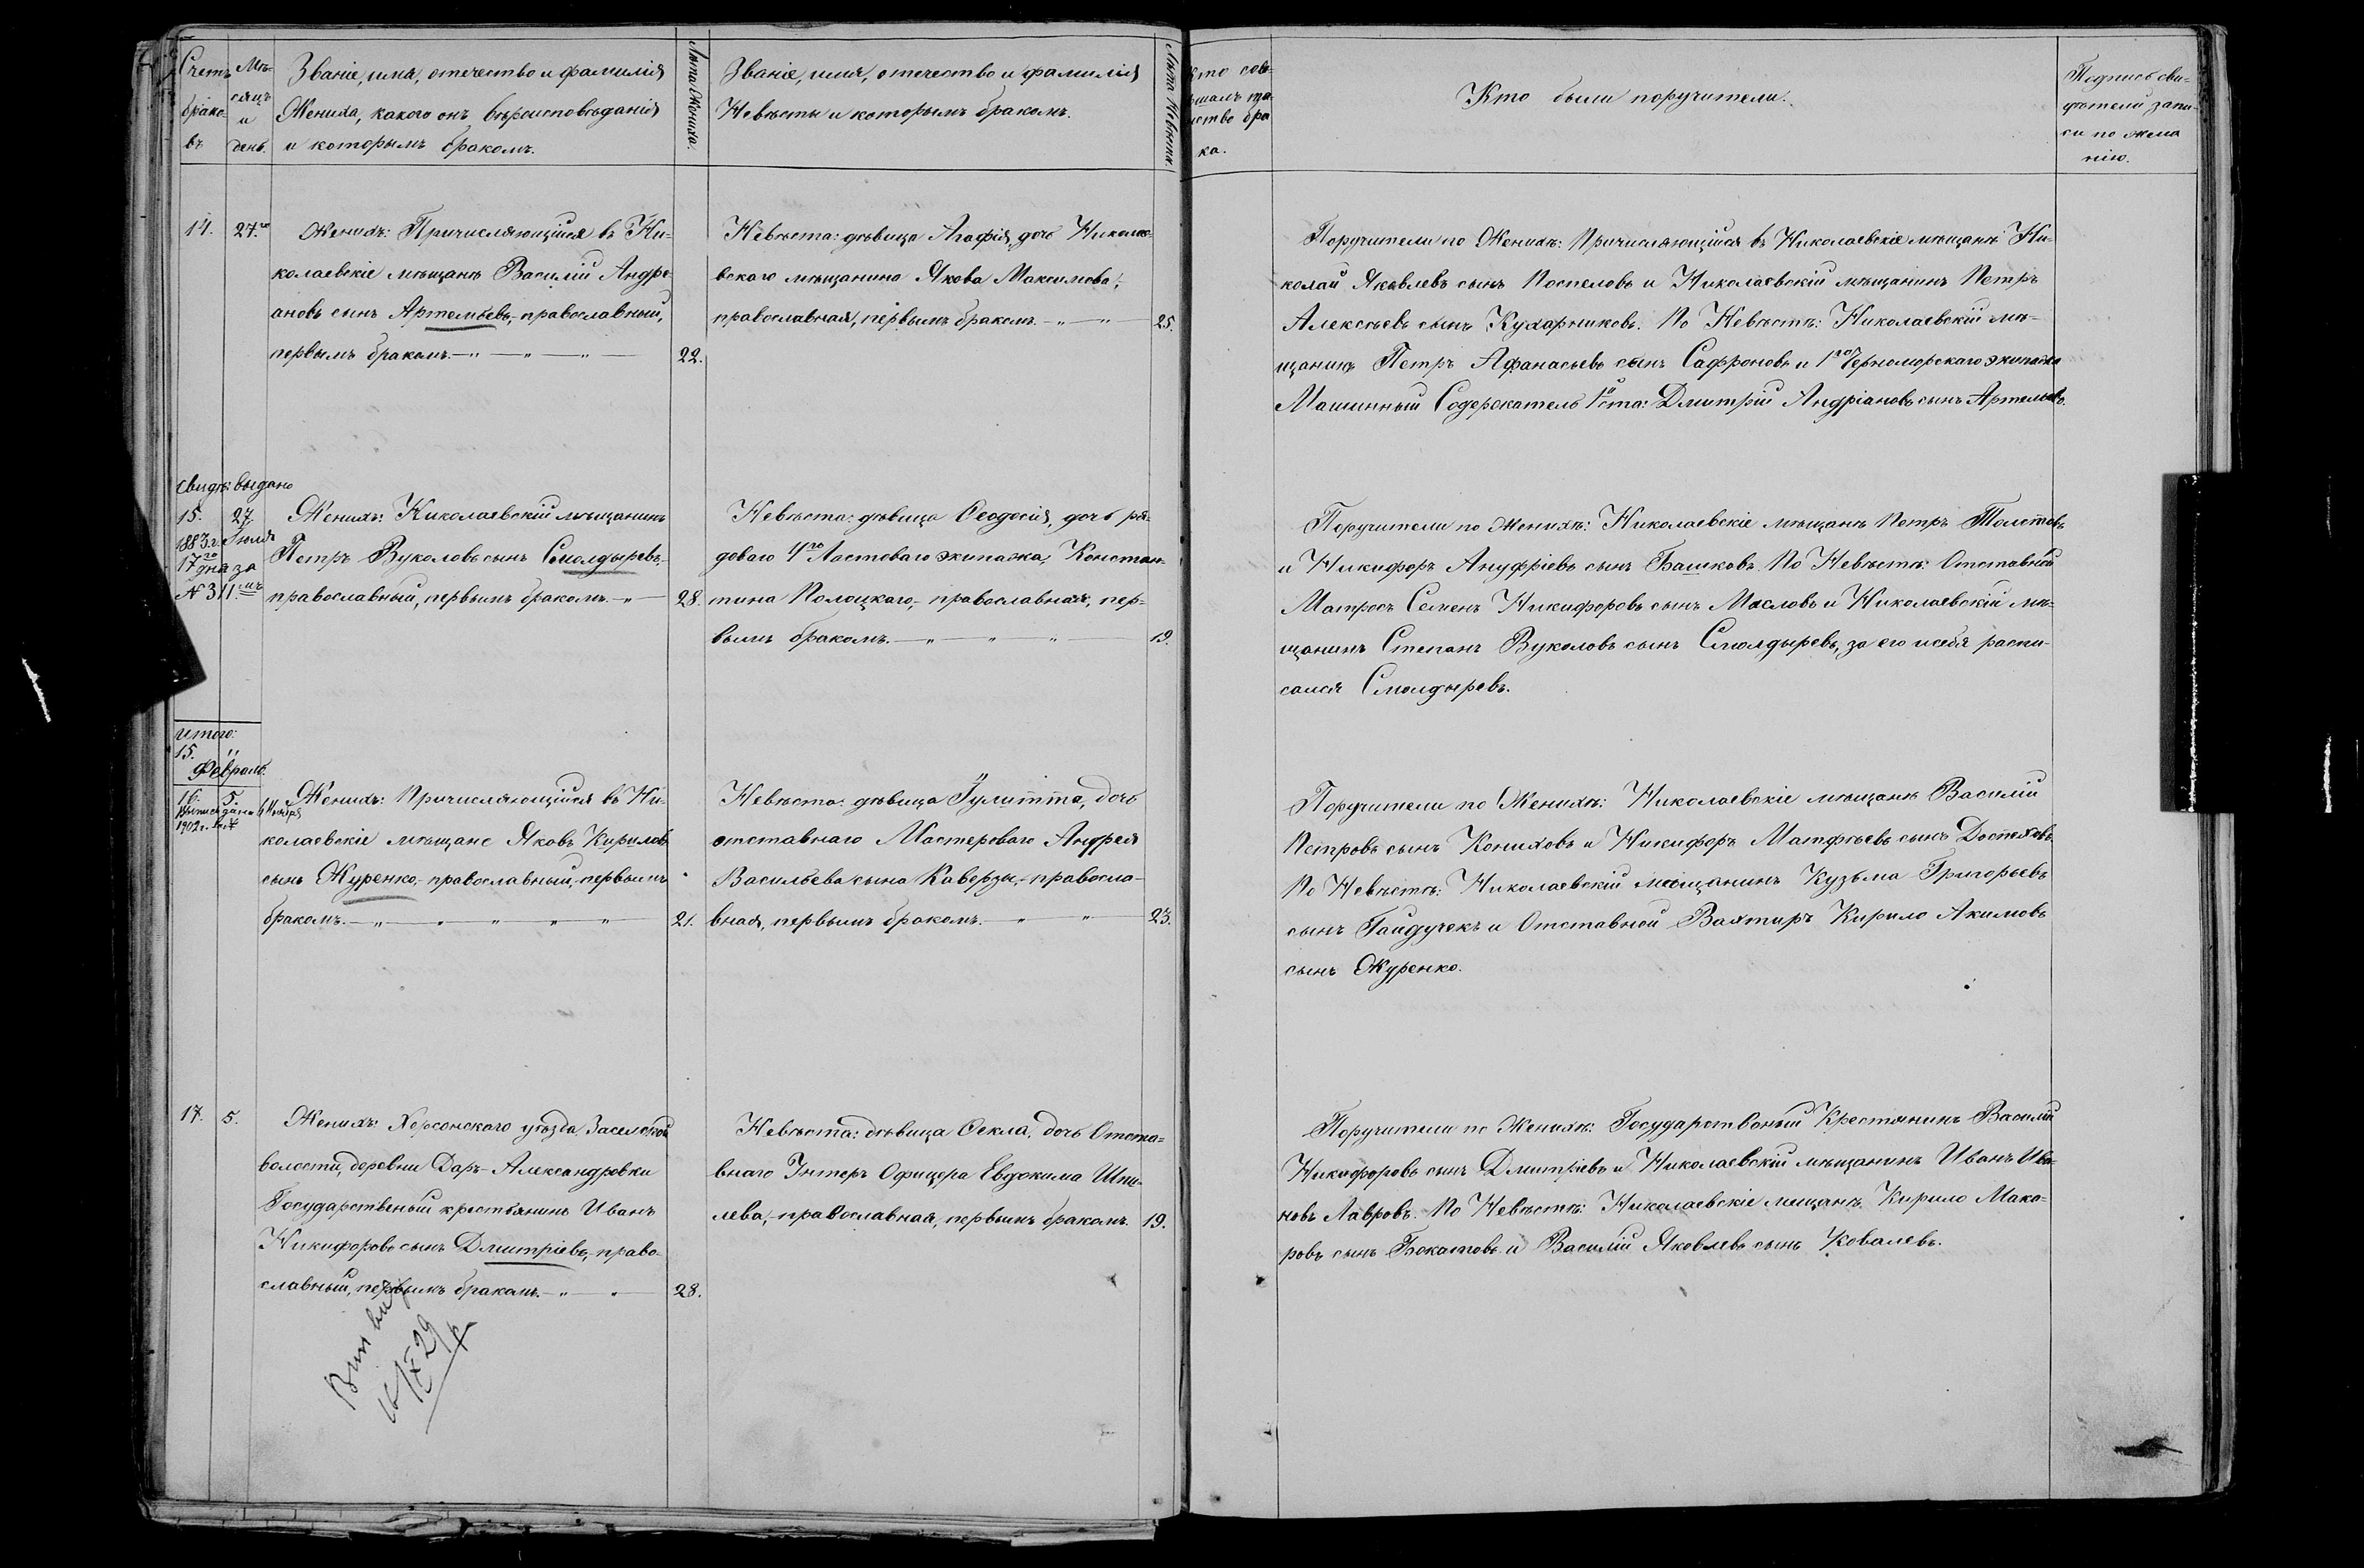 Счетъ
брако-
въ
Мѣ-
сяцъ
и
день.
Званіе, имя, отечество и фамилія
Жениха, какого онъ вѣроисповѣданія
и которымъ бракомъ.
Лѣта Жениха.
Званіе, имя, отечество и фамилія
Невѣсты и которымъ бракомъ.
Лѣта Невѣсты.
Кто сов-
ршалъ та-
нство бра
ка.
Кто были поручители.
Подпись сви-
дѣтелей запи-
си по жела
нію.
14.
27.го
Женихъ: Причисляющійся въ Ни-
колаевскіе мѣщанѣ Василій Андре-
ановъ сынъ Артемьевъ,- православный,
первымъ бракомъ.—"—"—
22.
Невѣста: дѣвица Агафія, дочь Николае-
вскаго мѣщанина Якова Максимова,-
православная, первымъ бракомъ.—"—"—
25.
Поручители по Женихѣ: Причисляющійся въ Николаевскіе мѣщанѣ Ни-
колай Яковлевъ сынъ Поспеловъ и Николаевскій мѣщанинъ Петръ
Алексѣевъ сынъ Кухарниковъ. По Невѣстѣ: Николаевскій мѣ-
щанинъ Петръ Афанасьевъ сынъ Сафроновъ и 1го Черноморскаго экипажа
Машинный Содержатель 1й ста: Дмитрій Андріановъ сынъ Артемьевъ.
Свидѣ: выдано
15.
27.
1883. г. Іюля
17го дня за
№ 311.мъ
Женихъ: Николаевскій мѣщанинъ
Петръ Вуколовъ сынъ Смолдыревъ,-
православный, первымъ бракомъ.—"—
28.
Невѣста: дѣвица Ѳеодосія, дочь ря-
доваго 4го Ластоваго экипажа, Констан-
тина Полоцкаго,- православная, пер-
вымъ бракомъ.—"—"—"—
19.
Поручители по Женихѣ: Николаевскіе мѣщанѣ Петръ Толстовъ
и Никифоръ Ануфріевъ сынъ Башковъ. По Невѣстѣ: Отставной
Матросъ Семенъ Никифоровъ сынъ Масловъ и Николаевскій мѣ-
щанинъ Степанъ Вуколовъ сынъ Смолдыревъ, за его и себя распи-
сался Смолдыревъ.
Итого:
15. "
Февраль.
16.
5.
1902 г.
Женихъ: Причисляющійся въ Ни-
колаевскіе мѣщане Яковъ Кириловъ
сынъ Журенко,- православный, первымъ
бракомъ.—"—"—"—"—"—
21.
Невѣста: дѣвица Іулитта, дочь
отставнаго Мастероваго Андрея
Васильева сына Каверзы,- правосла-
вная, первымъ бракомъ.—"—"—
23.
Поручители по Женихѣ: Николаевскіе мѣщанѣ Василій
Петровъ сынъ Кониховъ и Никифоръ Матфѣевъ сынъ Доспеховъ.
По Невѣстѣ: Николаевскій мѣщанинъ Кузьма Григорьевъ
сынъ Гайдучекъ и Отставной Вахтиръ Кирило Акимовъ
сынъ Журенко.
17.
5.
Женихъ: Херсонскаго уѣзда, Засельской
волости, деревни Даръ-Александровки
Государственый крестьянинъ Иванъ
Никифоровъ сынъ Дмитріевъ,- право-
славный, первымъ бракомъ.—"—"—
28.
Невѣста: дѣвица Ѳекла, дочь Отста-
внаго Унтеръ Офицера Евдокима Шпи-
лева,- православная, первымъ бракомъ.
19.
Поручители по Женихѣ: Государственый Крестянинъ Василій
Никифоровъ сынъ Дмитріевъ и Николаевскій мѣщанинъ Иванъ Ива-
новъ Лавровъ. По Невѣстѣ: Николаевскіе мещанѣ Кирило Мака-
ровъ сынъ Бокатовъ и Василій Яковлевъ сынъ Ковалевъ.